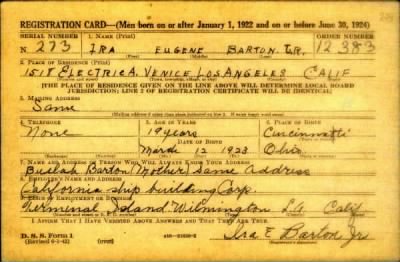 REGISTRATION CARD—(Men born on or after January 1, 1922 and on or before June 30, 1924)
SERIAL NUMBER 1. NAME (Print) ORDER NUMBER
N 273 IRA EUGENE BARTON. JR. 12383
(First) (Middle) (Last)
2. PLACE OF RESIDENCE (Print)
1518 ELECTRIC A. VENICE LOS ANGELES CALIF
(Number and street) (Town, township, village, or city) (County) (State)
[THE PLACE OF RESIDENCE GIVEN ON THE LINE ABOVE WILL DETERMINE LOCAL BOARD
JURISDICTION; LINE 2 OF REGISTRATION CERTIFICATE WILL BE IDENTICAL]
3. MAILING ADDRESS
Same
4. TELEPHONE 5. AGE IN YEARS 6. PLACE OF BIRTH
None 19 years Cincinnatti
DATE OF BIRTH
March 12 1923 Ohio.
7. NAME AND ADDRESS OF PERSON WHO WILL ALWAYS KNOW YOUR ADDRESS
Beulah Barton (Mother) same address
8. EMPLOYER'S NAME AND ADDRESS
California ship building Corp.
9. PLACE OF EMPLOYMENT OR BUSINESS
Terminal Island Wilmington LA Calif
I AFFIRM THAT I HAVE VERIFIED ABOVE ANSWERS AND THAT THEY ARE TRUE.
D. S. S. Form 1
Ira E Barton Jr